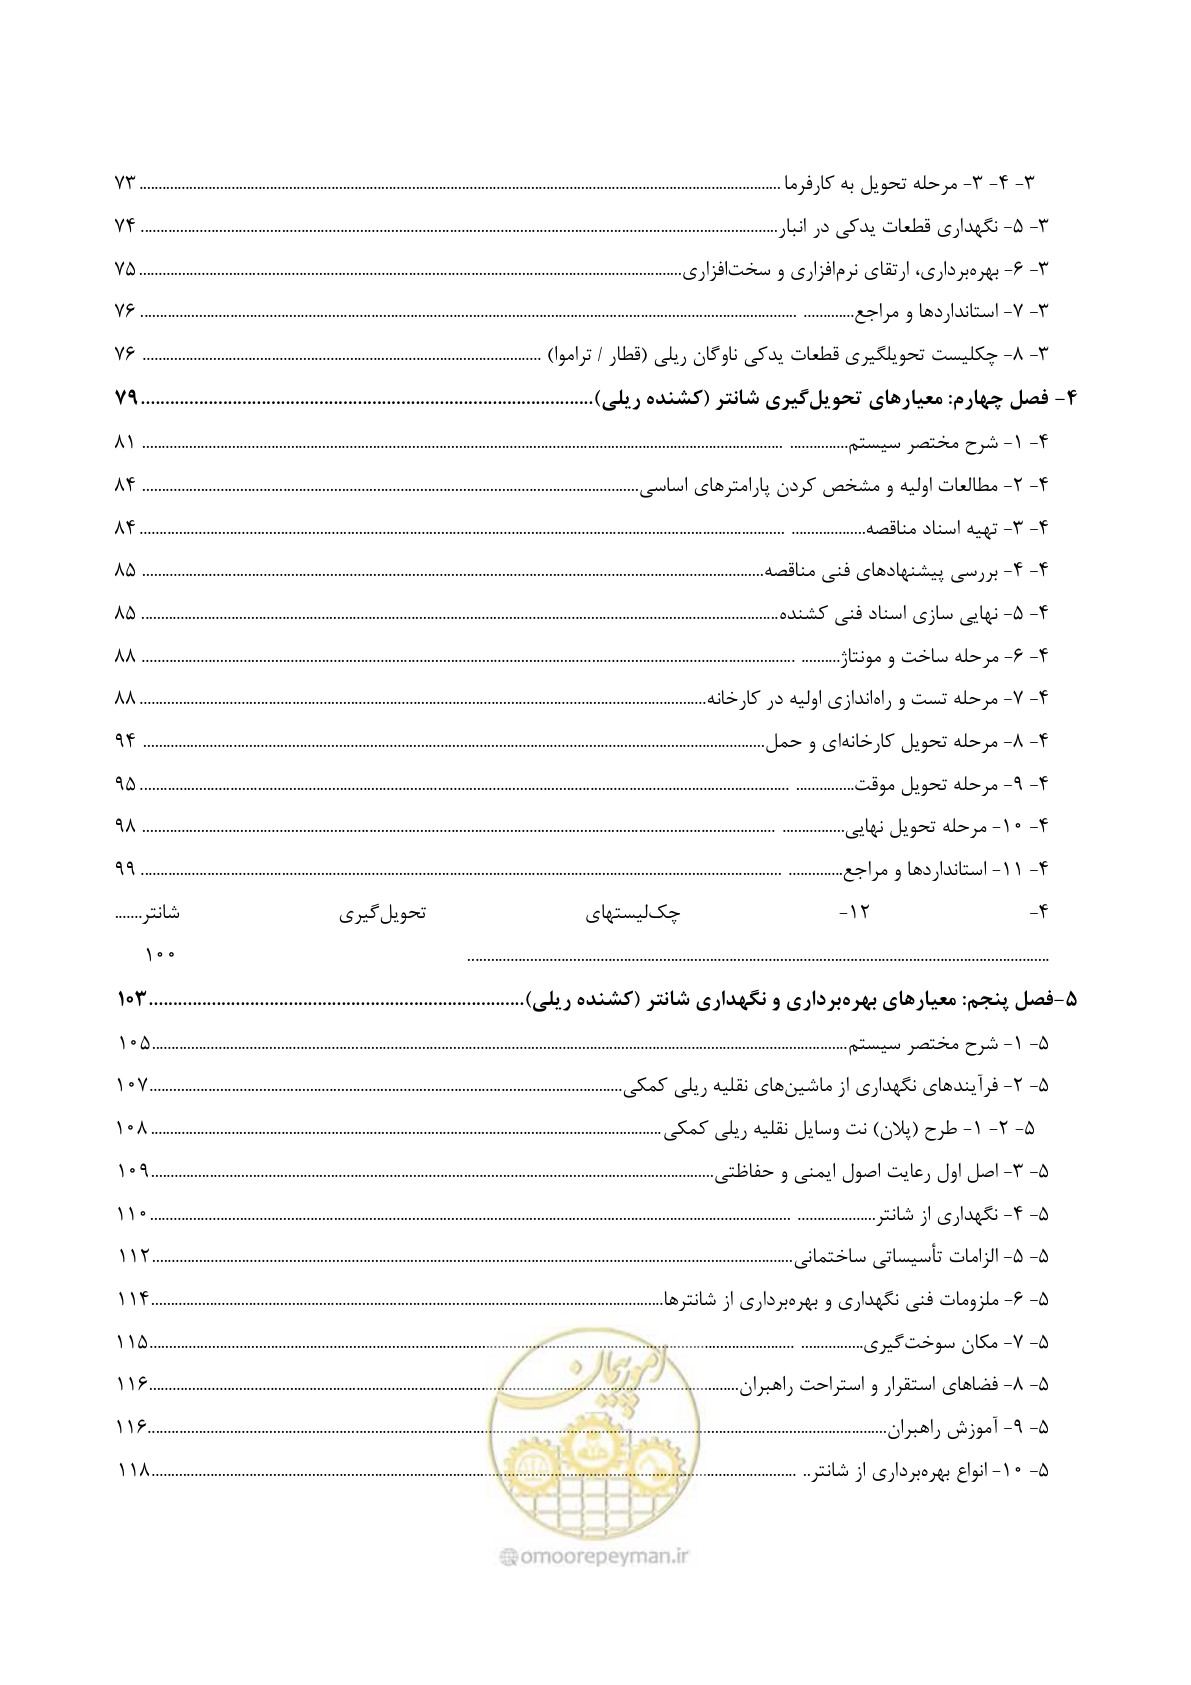 ۳- ۴- ۳- مرحله تحویل به کارفرما ........ ۷۳
۳- ۵- نگهداری قطعات یدکی در انبار ........ ۷۴
۳- ۶- بهره‌برداری، ارتقای نرم‌افزاری و سخت‌افزاری ........ ۷۵
۳- ۷- استانداردها و مراجع ........ ۷۶
۳- ۸- چکلیست تحویلگیری قطعات یدکی ناوگان ریلی (قطار / تراموا) ........ ۷۶
۴- فصل چهارم: معیارهای تحویل‌گیری شانتر (کشنده ریلی) ........ ۷۹
۴- ۱- شرح مختصر سیستم ........ ۸۱
۴- ۲- مطالعات اولیه و مشخص کردن پارامترهای اساسی ........ ۸۴
۴- ۳- تهیه اسناد مناقصه ........ ۸۴
۴- ۴- بررسی پیشنهادهای فنی مناقصه ........ ۸۵
۴- ۵- نهایی سازی اسناد فنی کشنده ........ ۸۵
۴- ۶- مرحله ساخت و مونتاژ ........ ۸۸
۴- ۷- مرحله تست و راه‌اندازی اولیه در کارخانه ........ ۸۸
۴- ۸- مرحله تحویل کارخانه‌ای و حمل ........ ۹۴
۴- ۹- مرحله تحویل موقت ........ ۹۵
۴- ۱۰- مرحله تحویل نهایی ........ ۹۸
۴- ۱۱- استانداردها و مراجع ........ ۹۹
۴- ۱۲- چک‌لیستهای تحویل‌گیری شانتر.......
........ ۱۰۰
۵-فصل پنجم: معیارهای بهره‌برداری و نگهداری شانتر (کشنده ریلی) ........ ۱۰۳
۵- ۱- شرح مختصر سیستم ........ ۱۰۵
۵- ۲- فرآیندهای نگهداری از ماشین‌های نقلیه ریلی کمکی ........ ۱۰۷
۵- ۲- ۱- طرح (پلان) نت وسایل نقلیه ریلی کمکی ........ ۱۰۸
۵- ۳- اصل اول رعایت اصول ایمنی و حفاظتی ........ ۱۰۹
۵- ۴- نگهداری از شانتر ........ ۱۱۰
۵- ۵- الزامات تأسیساتی ساختمانی ........ ۱۱۲
۵- ۶- ملزومات فنی نگهداری و بهره‌برداری از شانترها ........ ۱۱۴
۵- ۷- مکان سوخت‌گیری ........ ۱۱۵
۵- ۸- فضاهای استقرار و استراحت راهبران ........ ۱۱۶
۵- ۹- آموزش راهبران ........ ۱۱۶
۵- ۱۰- انواع بهره‌برداری از شانتر ........ ۱۱۸
امور پیمان
@omoorepeyman.ir